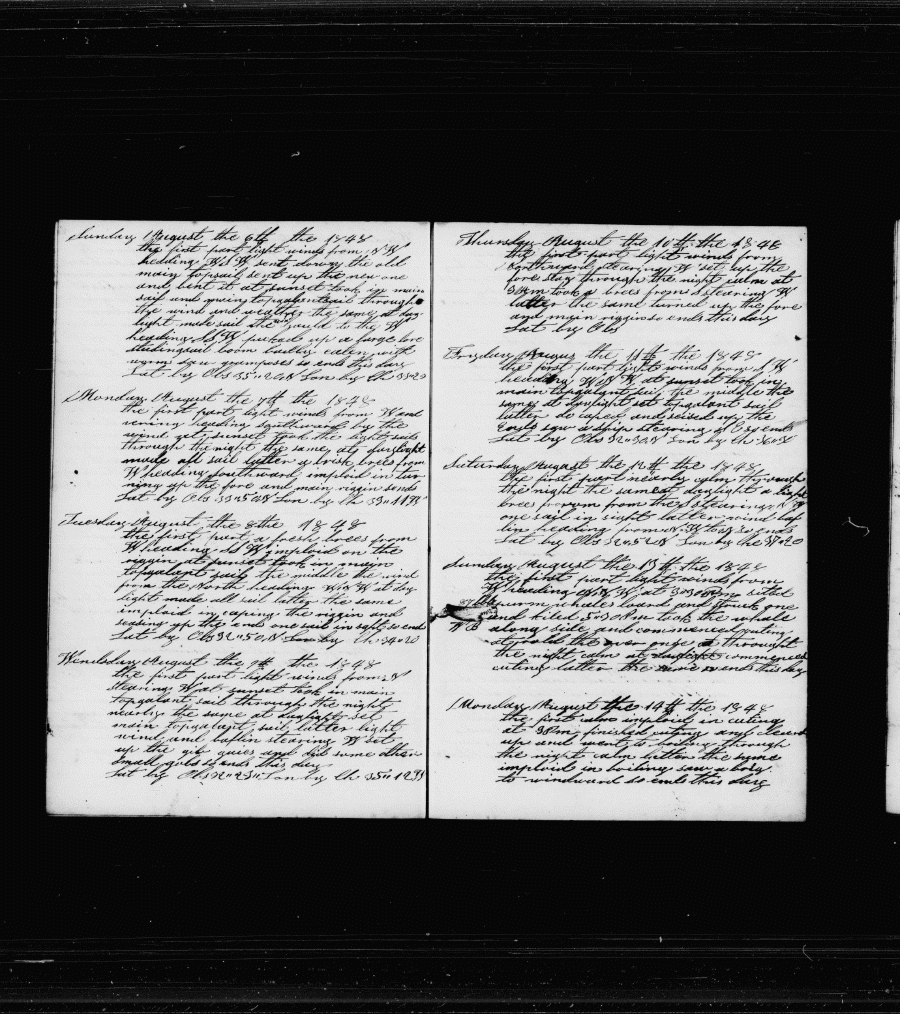 Sunday August the 6th the 1848
the first part light winds from N W
heading WSW sent down the old
main topsail sent up the new one
and bent it at sunset took in main
sail and main topgalantsail through
the wind and weather the same at day
light made sail the to the W
heading SSW picked up a large
studingsail boom badly eaten with
worms so ends this day
Lat by Obs 35"24N Lon by Ch 33"20
Monday August the 7th the 1848
the first part light winds from W and
vering heading southward by the
wind at sunset took the light sails
through the night the same at daylight
made all sail latter a brisk brees from
W heading southward imploid in tur
ning up the fore and main riggin so ends
Lat by Obs 33"50N Lon by Ch 33"
Tuesday August the 8 the 1848
the first part a fresh brees from
W heading SSW imploid on the
riggin at sunset took in main
topgalant sail the middle the wind
from the North heading WNW at day
light made all sail latter the same
imploid in caping the riggin and
seasing up the ends one sail in sight so ends
Lat by Obs 32"50N Lon by Ch 34"20
Wendsday August the 9th the 1848
the first part light winds from N
stearing W at sunset took in main
topgalant sail through the night
nearly the same at daylight set
main topgalant sail latter light
wind and baflin stearing W set
up the gib guies and did some other
small gobs so ends this day
Lat by Obs 32"23N Lon by Ch 35"12
Thursday August the 10th the 1848
the first part light winds from
Northward stearing W set up the
fore stay through the night calm at
3 am took a brees from S stearing W
latter the same turned up the fore
and main riggin so ends this day
Lat by Obs
Fryday August the 11th the 1848
the first part light winds from S W
heading WNW at sunset took in
main topgalant sail the middle the
same at daylight set topgalant sail
latter do caped and seised up the
ends saw a ship stearing E so ends
Lat by Obs 32"30N Lon by Ch 36"
Saturday August the 12th the 1848
the first part nearly calm through
the night the same at daylight a light
brees from the S stearing N W
one sail in sight latter wind baf
lin heading from N W to S W so ends
Lat by Obs 32"52N Lon by Ch 37"20
Sunday August the 13th the 1848
the first part light winds from
W heading NNW at 3"30 pm sited
sperm whales loard and struck one
and kiled 5"30 Pm took the whale
along side and commenced cuting
at hold the over through
the night calm at daylight commenced
cuting latter the same so ends this day
Monday August the 14th the 1848
the first calm imploid in cuting
at 3Pm finished cuting and cleard
up and went to boiling through
the night calm latter the same
imploid in boiling saw a
to windward so ends this day